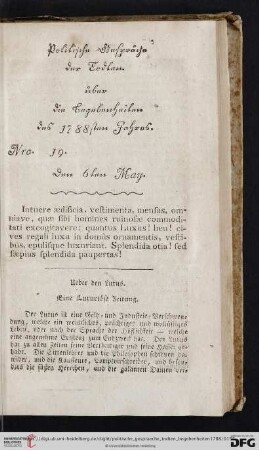 Politische Gespräche
der Todten
über
die Begebenheiten
des 1788sten Jahres.
Nro. 19.
den 6ten May.
Intuere ædificia, vestimenta, mensas, om-
niave, quæ sibi homines ruinosæ commodi-
tati excogitavere: quantus luxus! heu! ci-
ves reguli luxu in domûs ornamentis, vesti-
bus, epulisque luxuriant. Splendida otia! sed
sæpius splendida paupertas!
Ueber den Luxus.
Eine Antwerkis Zeitung.
Der Luxus ist eine Geld- und Industrie-Verschwen-
dung, welche ein weichliches, prächtiges und wollüstiges
Leben, oder nach der Sprache der Aesthetiker — welche
eine angenehme Existenz zum Entzweck hat. Der Luxus
hat zu allen Zeiten seine Vertheidiger und seine Hasser ge-
habt. Die Sittenlehrer und die Philosophen schrieen da-
wider, und die Kaufleute, Komptoirschreiber, und beson-
ders die süßen Herrchen, und die galanten Damen ver-